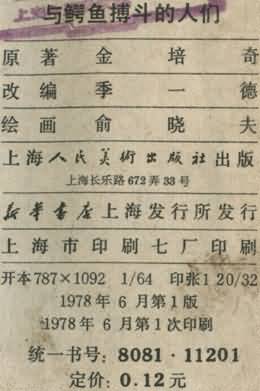 与鳄鱼搏斗的人们
原著 金培奇
改编 季一德
绘画 俞晓夫
上海人民美術出版社出版
上海长乐路672弄33号
新华书店上海发行所发行
上海市印刷七厂印刷
开本787×1092 1/64 印张1 20/32
1978年6月第1版
1978年6月第1次印刷
统一书号：8081·11201
定价：0.12元